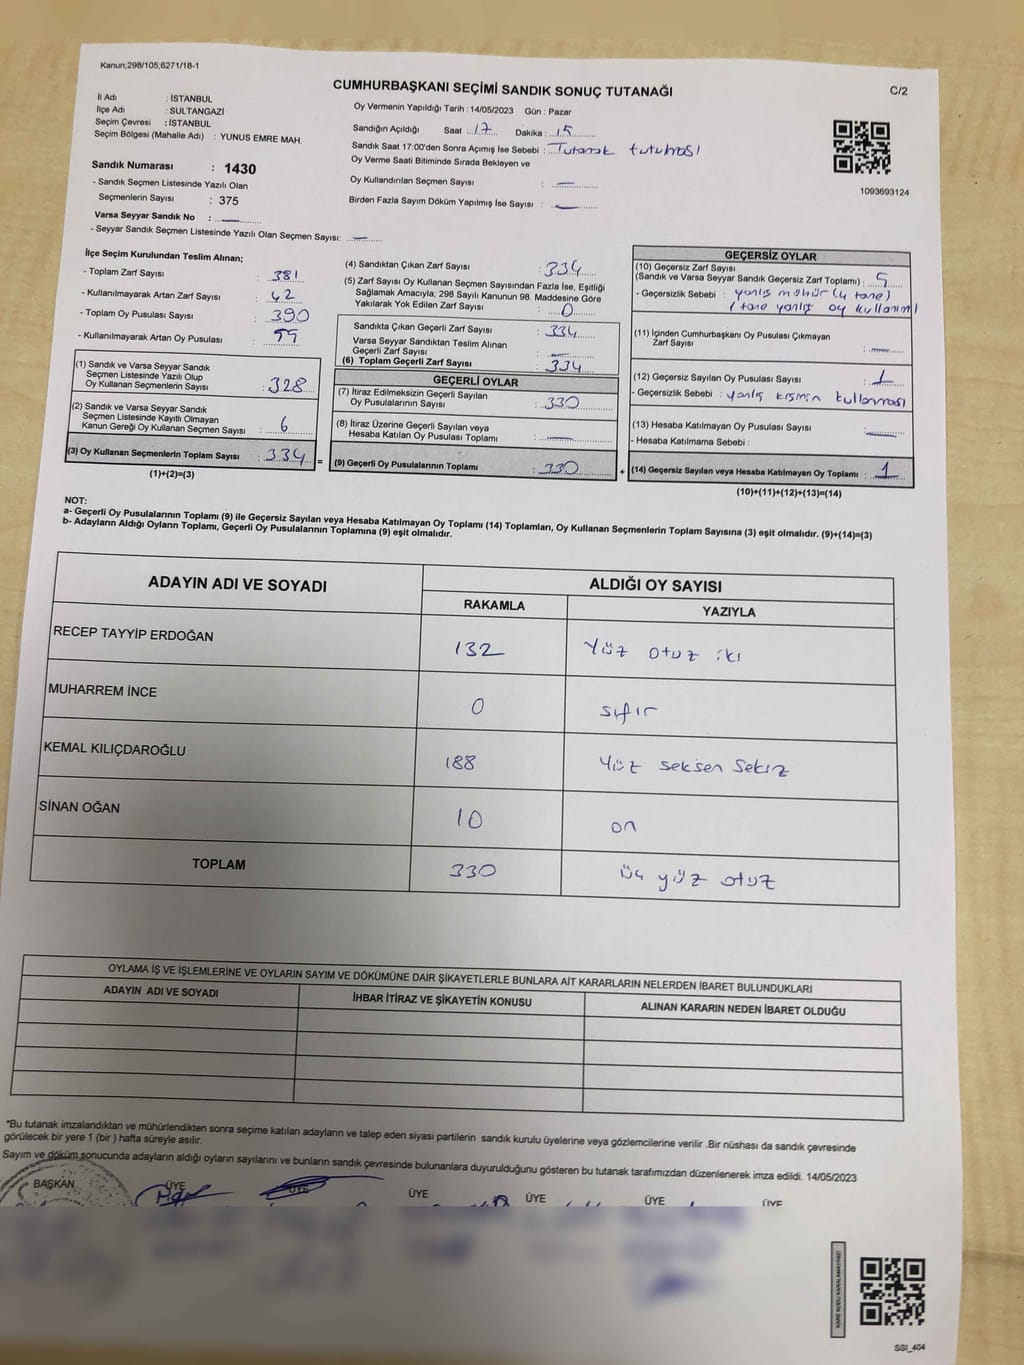 Kanun;298/105;6271/18-1
CUMHURBAŞKANI SEÇİMİ SANDIK SONUÇ TUTANAĞI
C/2
İl Adı : İSTANBUL
İlçe Adı : SULTANGAZİ
Seçim Çevresi : İSTANBUL
Seçim Bölgesi (Mahalle Adı) : YUNUS EMRE MAH.
Sandık Numarası : 1430
- Sandık Seçmen Listesinde Yazılı Olan
Seçmenlerin Sayısı : 375
Varsa Seyyar Sandık No : —
- Seyyar Sandık Seçmen Listesinde Yazılı Olan Seçmen Sayısı: —
Oy Vermenin Yapıldığı Tarih :14/05/2023 Gün : Pazar
Sandığın Açıldığı Saat : 17 Dakika : 15
Sandık Saat 17:00'den Sonra Açımış İse Sebebi : Tutanak tutulması
Oy Verme Saati Bitiminde Sırada Bekleyen ve
Oy Kullandırılan Seçmen Sayısı : —
Birden Fazla Sayım Döküm Yapılmış İse Sayısı : —
1093693124
İlçe Seçim Kurulundan Teslim Alınan;
- Toplam Zarf Sayısı : 381
- Kullanılmayarak Artan Zarf Sayısı : 42
- Toplam Oy Pusulası Sayısı : 390
- Kullanılmayarak Artan Oy Pusulası :
(1) Sandık ve Varsa Seyyar Sandık
Seçmen Listesinde Yazılı Olup
Oy Kullanan Seçmenlerin Sayısı : 328
(2) Sandık ve Varsa Seyyar Sandık
Seçmen Listesinde Kayıtlı Olmayan
Kanun Gereği Oy Kullanan Seçmen Sayısı : 6
(3) Oy Kullanan Seçmenlerin Toplam Sayısı : 334
(1)+(2)=(3)
(4) Sandıktan Çıkan Zarf Sayısı : 334
(5) Zarf Sayısı Oy Kullanan Seçmen Sayısından Fazla İse, Eşitliği
Sağlamak Amacıyla, 298 Sayılı Kanunun 98. Maddesine Göre
Yakılarak Yok Edilen Zarf Sayısı : 0
Sandıkta Çıkan Geçerli Zarf Sayısı : 334
Varsa Seyyar Sandıktan Teslim Alınan
Geçerli Zarf Sayısı : —
(6) Toplam Geçerli Zarf Sayısı : 334
GEÇERLİ OYLAR
(7) İtiraz Edilmeksizin Geçerli Sayılan
Oy Pusulalarının Sayısı : 330
(8) İtiraz Üzerine Geçerli Sayılan veya
Hesaba Katılan Oy Pusulası Toplamı : —
= (9) Geçerli Oy Pusulalarının Toplamı : 330
GEÇERSİZ OYLAR
(10) Geçersiz Zarf Sayısı
(Sandık ve Varsa Seyyar Sandık Geçersiz Zarf Toplamı) : 5
- Geçersizlik Sebebi : yanlış mühür (4 tane)
1 tane yanlış oy kullanımı
(11) İçinden Cumhurbaşkanı Oy Pusulası Çıkmayan
Zarf Sayısı : —
(12) Geçersiz Sayılan Oy Pusulası Sayısı : 1
- Geçersizlik Sebebi : yanlış kısmın kullanması
(13) Hesaba Katılmayan Oy Pusulası Sayısı : —
- Hesaba Katılmama Sebebi :
+ (14) Geçersiz Sayılan veya Hesaba Katılmayan Oy Toplamı : 1
(10)+(11)+(12)+(13)=(14)
NOT:
a- Geçerli Oy Pusulalarının Toplamı (9) ile Geçersiz Sayılan veya Hesaba Katılmayan Oy Toplamı (14) Toplamları, Oy Kullanan Seçmenlerin Toplam Sayısına (3) eşit olmalıdır. (9)+(14)=(3)
b- Adayların Aldığı Oyların Toplamı, Geçerli Oy Pusulalarının Toplamına (9) eşit olmalıdır.
ADAYIN ADI VE SOYADI ALDIĞI OY SAYISI
RAKAMLA YAZIYLA
RECEP TAYYİP ERDOĞAN 132 Yüz otuz iki
MUHARREM İNCE 0 sıfır
KEMAL KILIÇDAROĞLU 188 Yüz seksen sekiz
SİNAN OĞAN 10 on
TOPLAM 330 üç yüz otuz
OYLAMA İŞ VE İŞLEMLERİNE VE OYLARIN SAYIM VE DÖKÜMÜNE DAİR ŞİKAYETLERLE BUNLARA AİT KARARLARIN NELERDEN İBARET BULUNDUKLARI
ADAYIN ADI VE SOYADI İHBAR İTİRAZ VE ŞİKAYETİN KONUSU ALINAN KARARIN NEDEN İBARET OLDUĞU
*Bu tutanak imzalandıktan ve mühürlendikten sonra seçime katılan adayların ve talep eden siyasi partilerin sandık kurulu üyelerine veya gözlemcilerine verilir .Bir nüshası da sandık çevresinde
görülecek bir yere 1 (bir ) hafta süreyle asılır.
Sayım ve döküm sonucunda adayların aldığı oyların sayılarını ve bunların sandık çevresinde bulunanlara duyurulduğunu gösteren bu tutanak tarafımızdan düzenlenerek imza edildi. 14/05/2023
BAŞKAN ÜYE ÜYE ÜYE ÜYE ÜYE ÜYE
KARE KODU KARALAMAYINIZ!
SSI_404